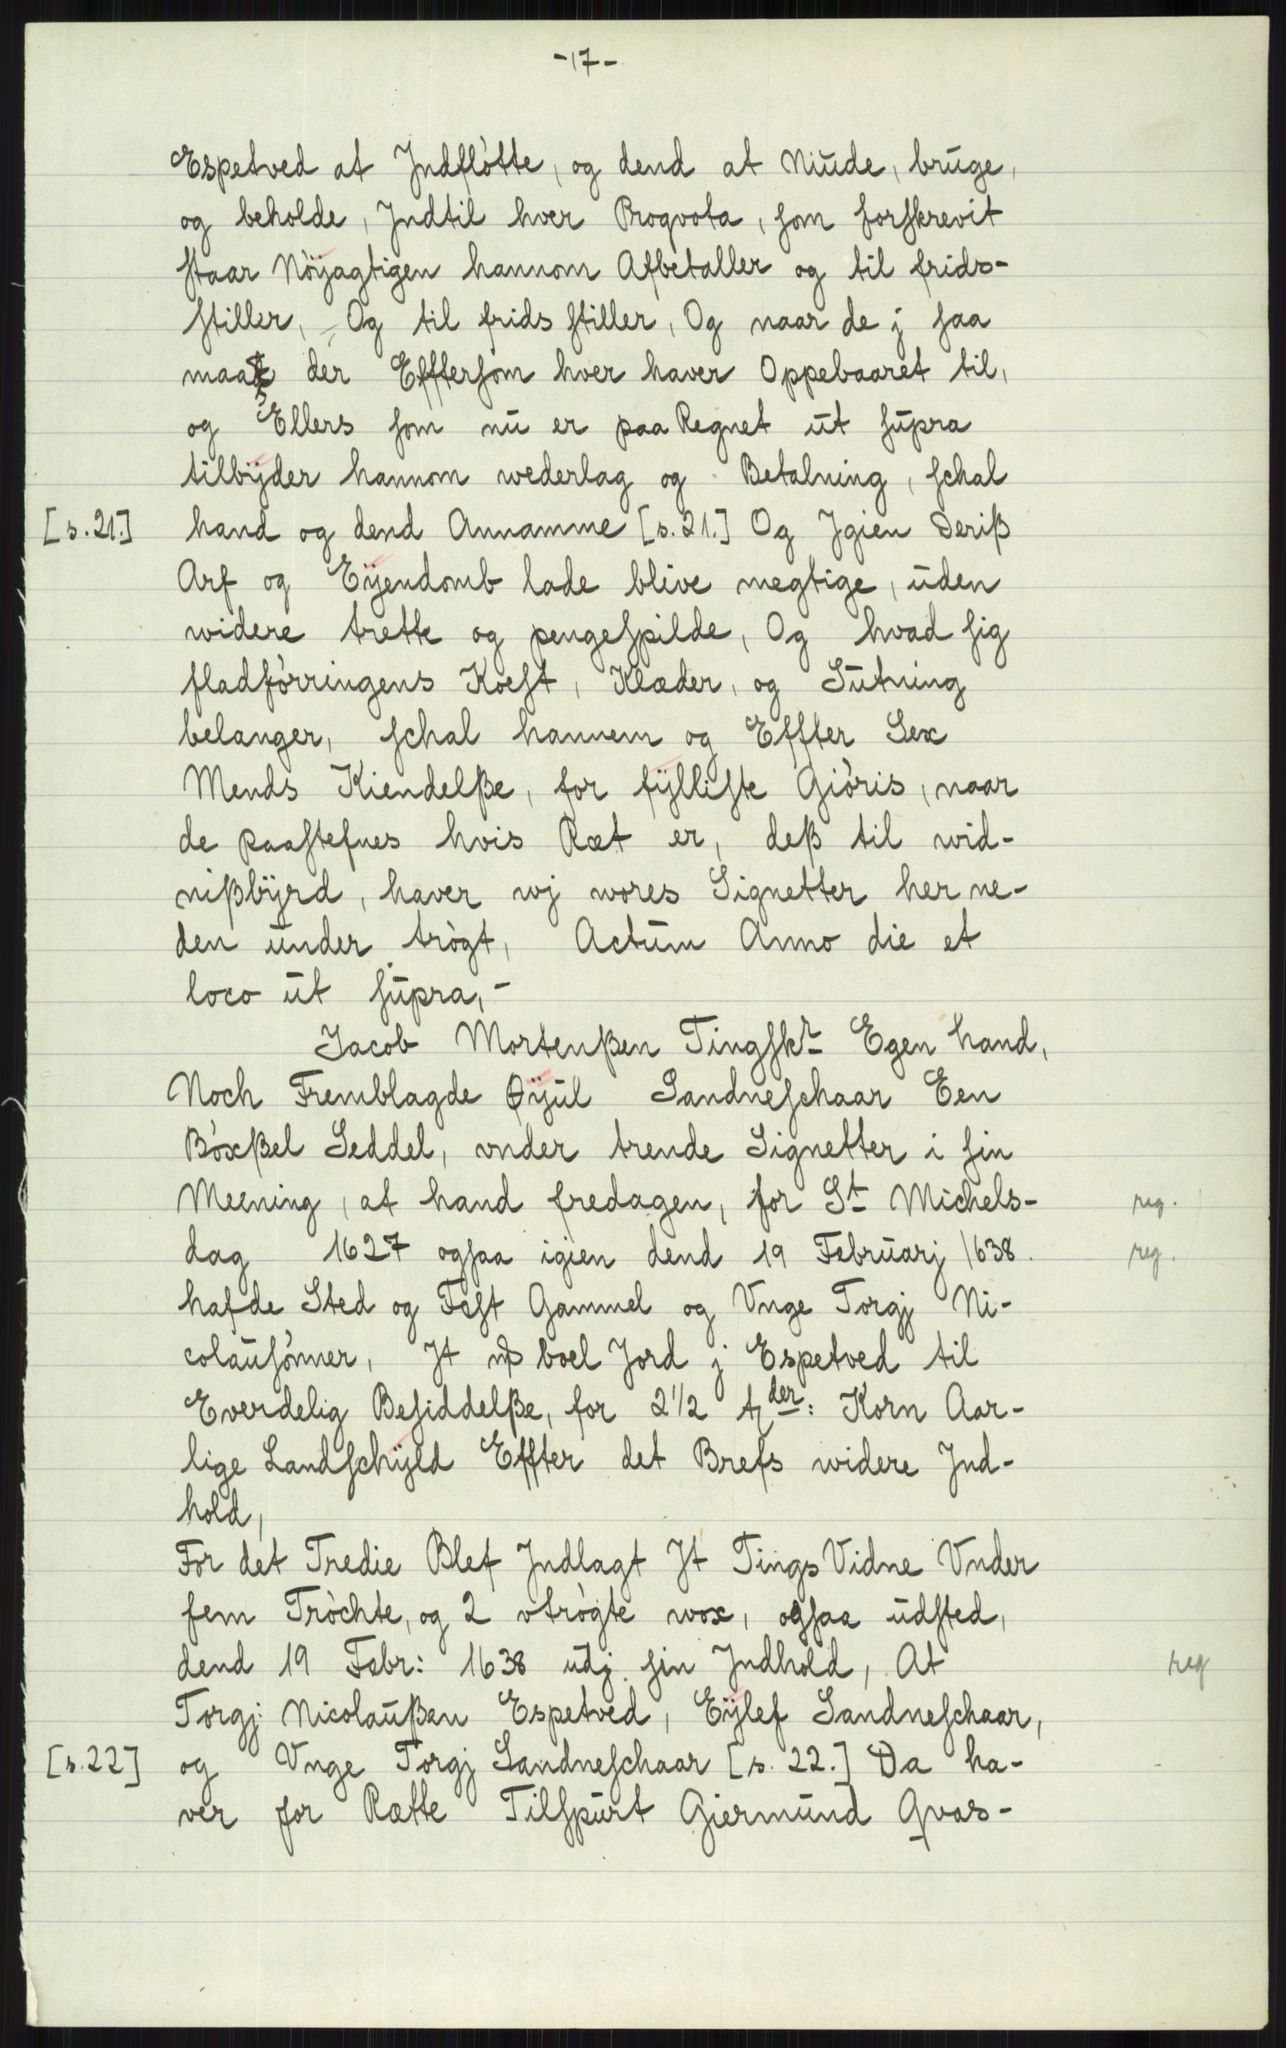 -17-
Espetved at Jndfløtte, og dend at Niude, bruge,
og beholde, Jndtil hver Proqvota, som forskrevit
staar Nöÿagtigen hannom Afbetaller og til frids-
stiller, Og til frids stiller, Og naar de j saa
maade der Efftersom hver haver Oppebaaret til,
og Ellers som nu er paa Regnet ut supra
tilbÿder hannom wederlag og Betalning, schal
[s.21.] hand og dend Annamme [s.21.] Og Jgien Deriß
Arf og Eÿendomb lade blive megtige, uden
widere trette og pengespilde, Og hvad sig
fladførringens Koest, Klæder, og Sutning
belanger, schal hannem og Effter Sex
Mends Kiendelße, for fÿlliste Giøris, naar
de paastefnes hvis Ræt er, deß til wid-
nißbÿrd, haver wj wores Signetter her ne-
den under trøgt, Actum Anno die et
loco ut supra,-
Jacob Mortenßen Tingskr Egen hand,
Noch Fremblagde Øÿul Sandneschaar Een
Bøxßel Seddel, vnder trende Signetter i sin
Meening, at hand fredagen, for St Michels- reg.
dag 1627 ogsaa igien dend 19 Februarj 1638. reg.
hafde Sted og Fest Gammel og Vnge Torgj Ni-
colausønner, Jt boel Jord j Espetved til
Everdelig Besiddelße, for 2 1/2 tder: Korn Aar-
lige Landschÿld Effter det Brefs widere Jnd-
hold,
For det Tredie Blef Jndlagt Jt Tings Vidne Vnder
fem Trøchte, og 2 vtrøgte wox, ogsaa udsted,
dend 19 Febr: 1638 udj sin Jndhold, At reg
Torgj: Nicolaußen Espetved, Eÿlef Sandneschaar,
[s.22] og Vnge Torgj Sandneschaar [s. 22.] Da ha-
ver for Rætte Tilspurt Giermund Qvas-